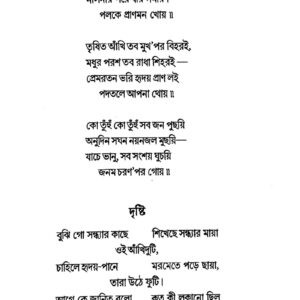 পলকে প্রাণমন খোয়॥
তৃষিত আঁখি তব মুখ'পর বিহরই,
মধুর পরশ তব রাধা শিহরই—
প্রেমরতন ভরি হৃদয় প্রাণ লই
পদতলে আপনা থোয়॥
কো তুঁহু কো তুঁহু সব জন পুছয়ি
অনুদিন সঘন নয়নজল মুছয়ি—
যাচে ভানু, সব সংশয় ঘুচয়ি
জনম চরণ'পর গোয়॥
দৃষ্টি
বুঝি গো সন্ধ্যার কাছে শিখেছে সন্ধ্যার মায়া
ওই আঁখিদুটি,
চাহিলে হৃদয়-পানে মরমেতে পড়ে ছায়া,
তারা উঠে ফুটি।
আগে কে জানিত বলো কত কী লুকানো ছিল